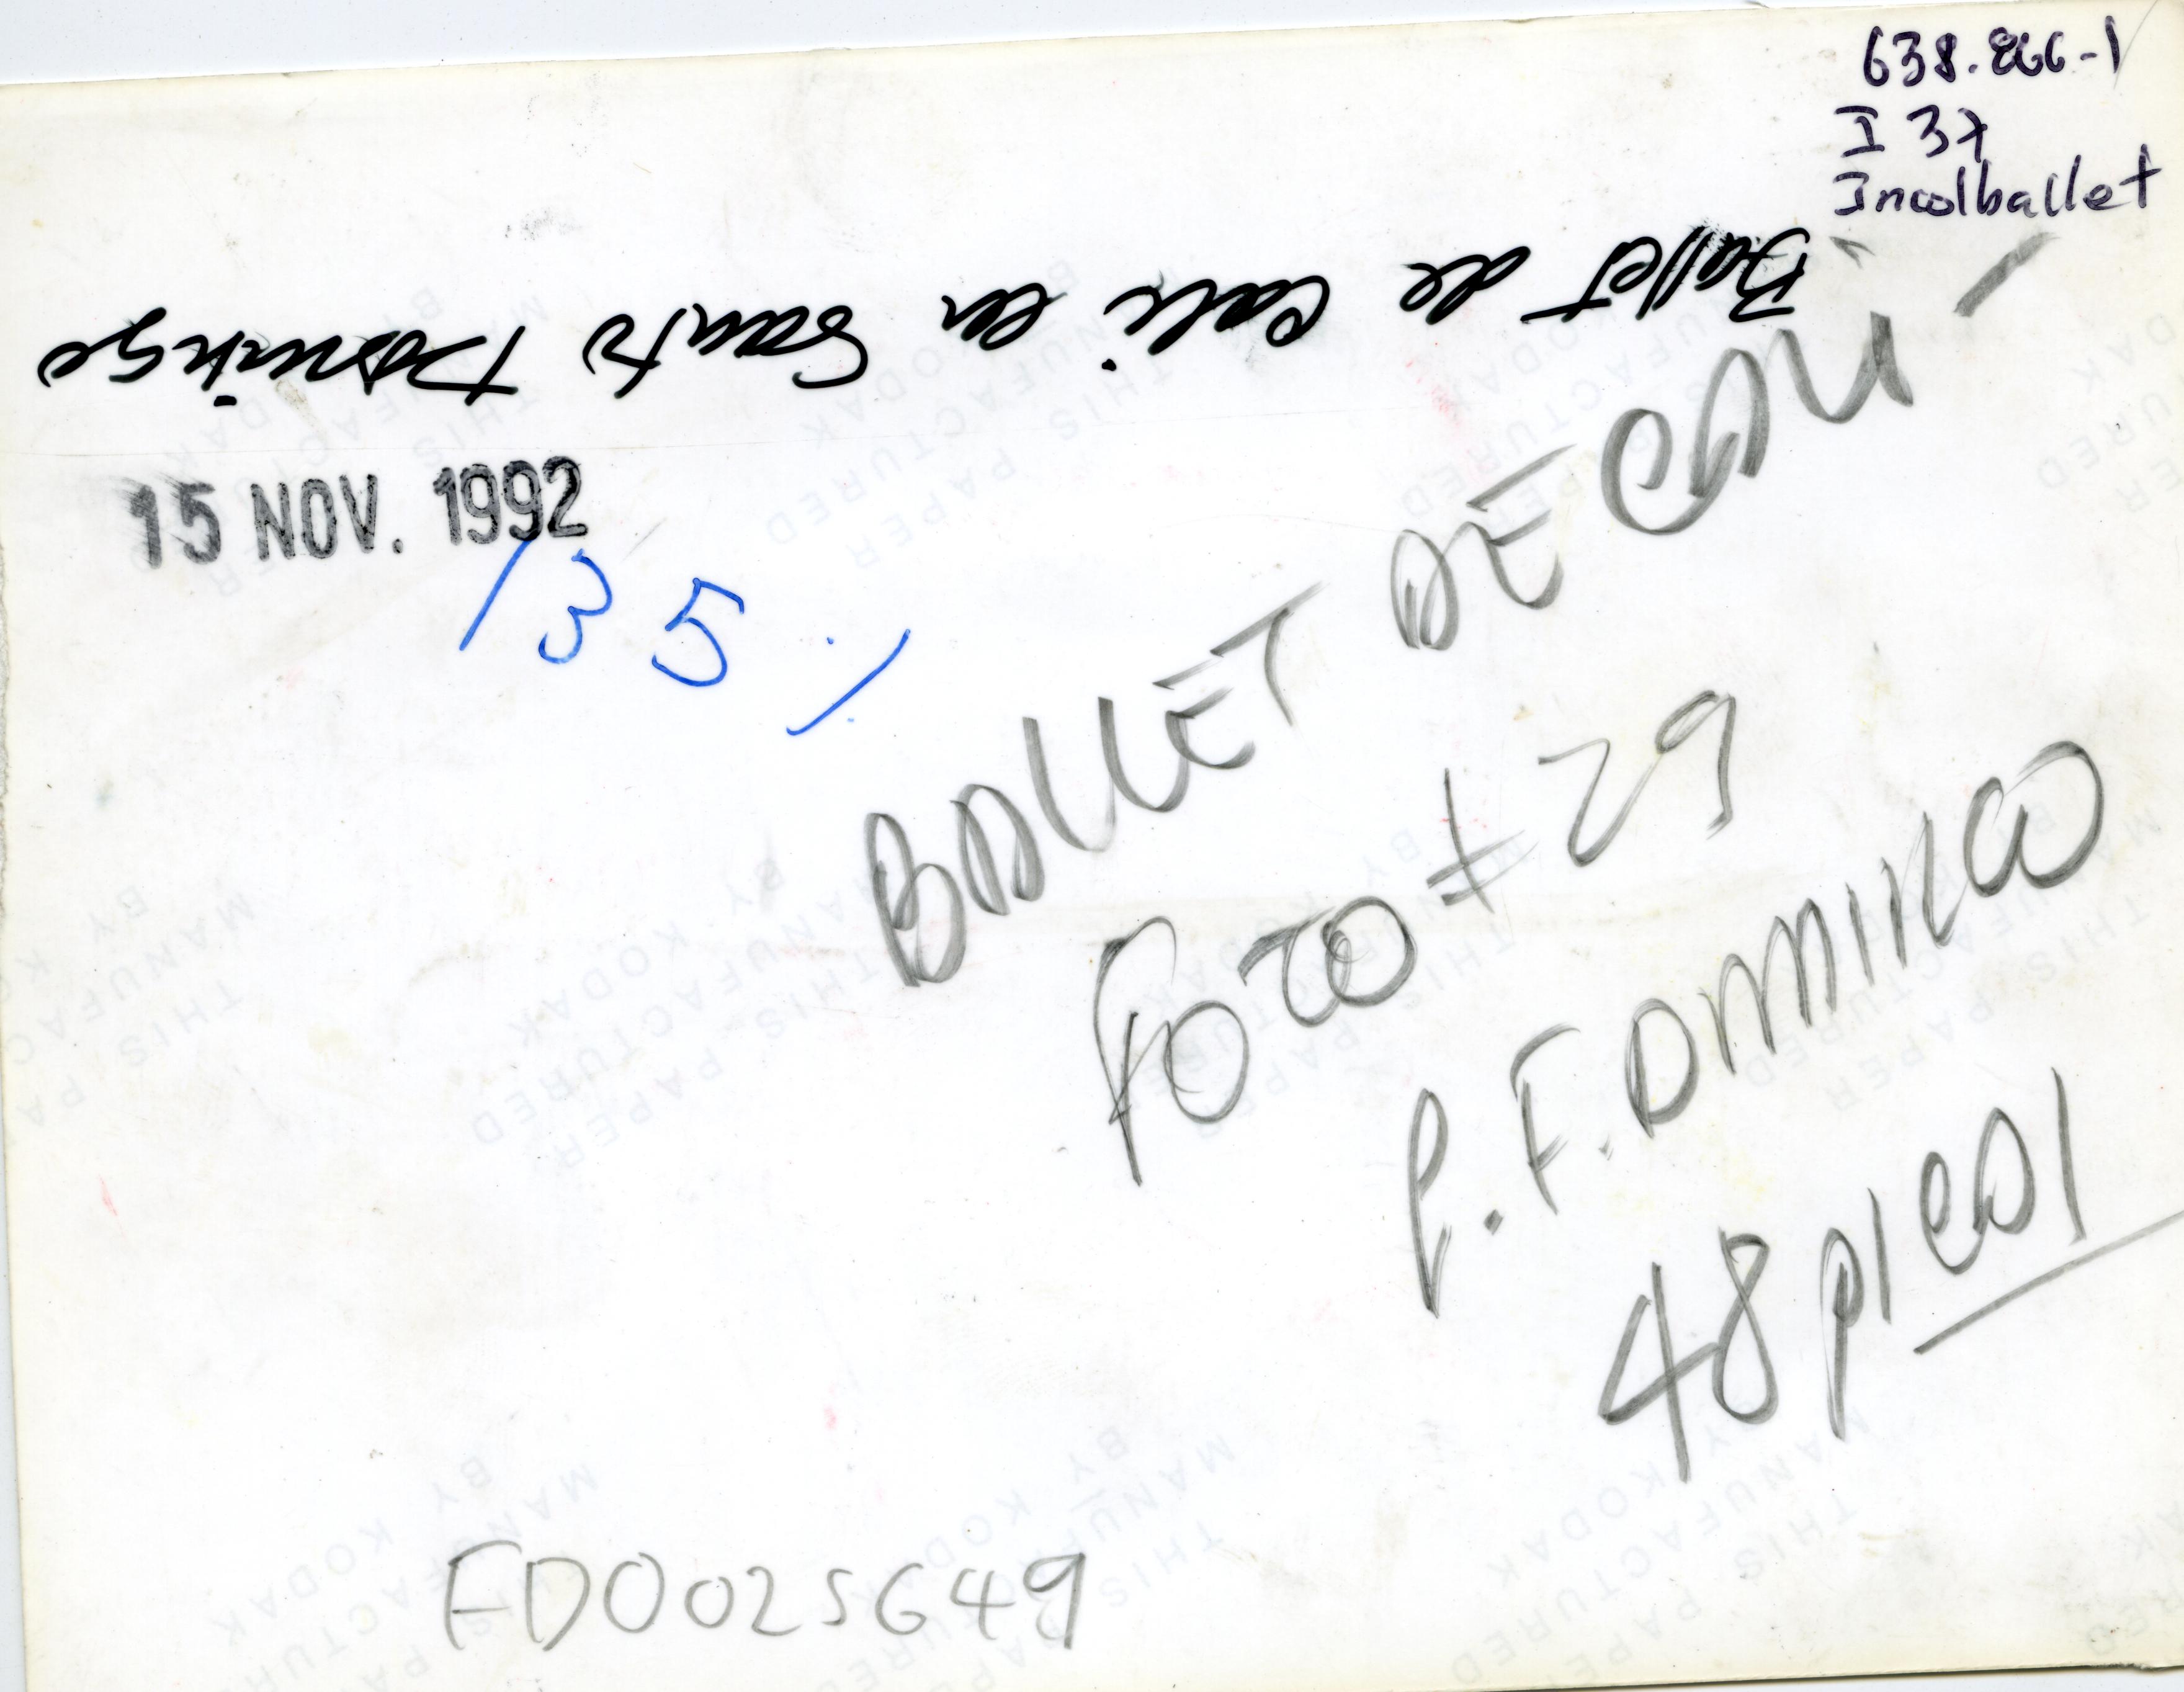 638.866-1
I 37
Incolballet
Ballet de Cali en Santo Domingo
15 NOV. 1992
135%
BALLET DE CALI
FOTO # 29
P. F. DOMINGO
48 picas
FD0025649
THIS PAPER
MANUFACTURED
BY KODAK